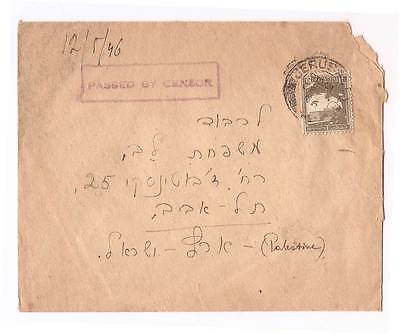 12/5/46
PASSED BY CENSOR
JERUS
לכבוד
משפחת לב,
רח' ז'בוטינסקי 25,
תל-אביב,
ארץ-ישראל. (Palestine)